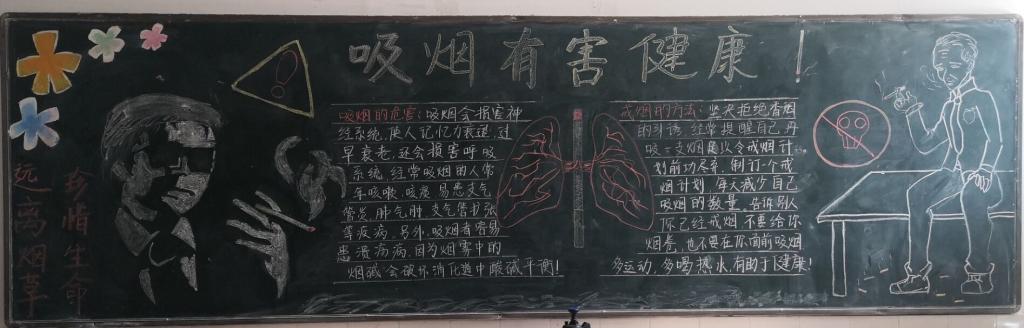 吸烟有害健康!
珍惜生命
远离烟草
吸烟的危害:吸烟会损害神
经系统,使人记忆力衰退,过
早衰老,还会损害呼吸
系统,经常吸烟的人常
年咳嗽、咳痰,易患支气
管炎、肺气肿、支气管扩张
等疾病,另外,吸烟者容易
患溃疡病,因为烟雾中的
烟碱会破坏消化道中酸碱平衡!
戒烟的方法:坚决拒绝香烟
的引诱,经常提醒自己,再
吸一支烟足以令戒烟计
划前功尽弃,制订个戒
烟计划,每天减少自己
吸烟的数量,告诉别人
你已经戒烟,不要给你
烟卷,也不要在你面前吸烟
多运动,多喝热水,有助于健康!